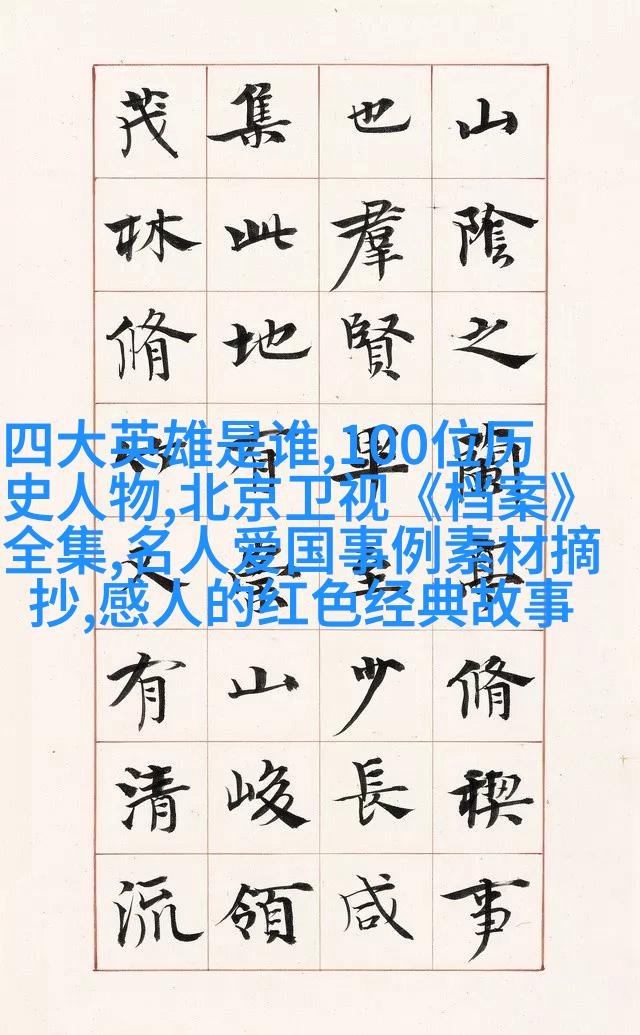 山陰之蘭亭脩禊事
也羣賢畢至少長咸
集此地有崇山峻領
茂林脩竹又有清流
四大英雄是谁,100位历
史人物,北京卫视《档案》
全集,名人爱国事例素材摘
抄,感人的红色经典故事